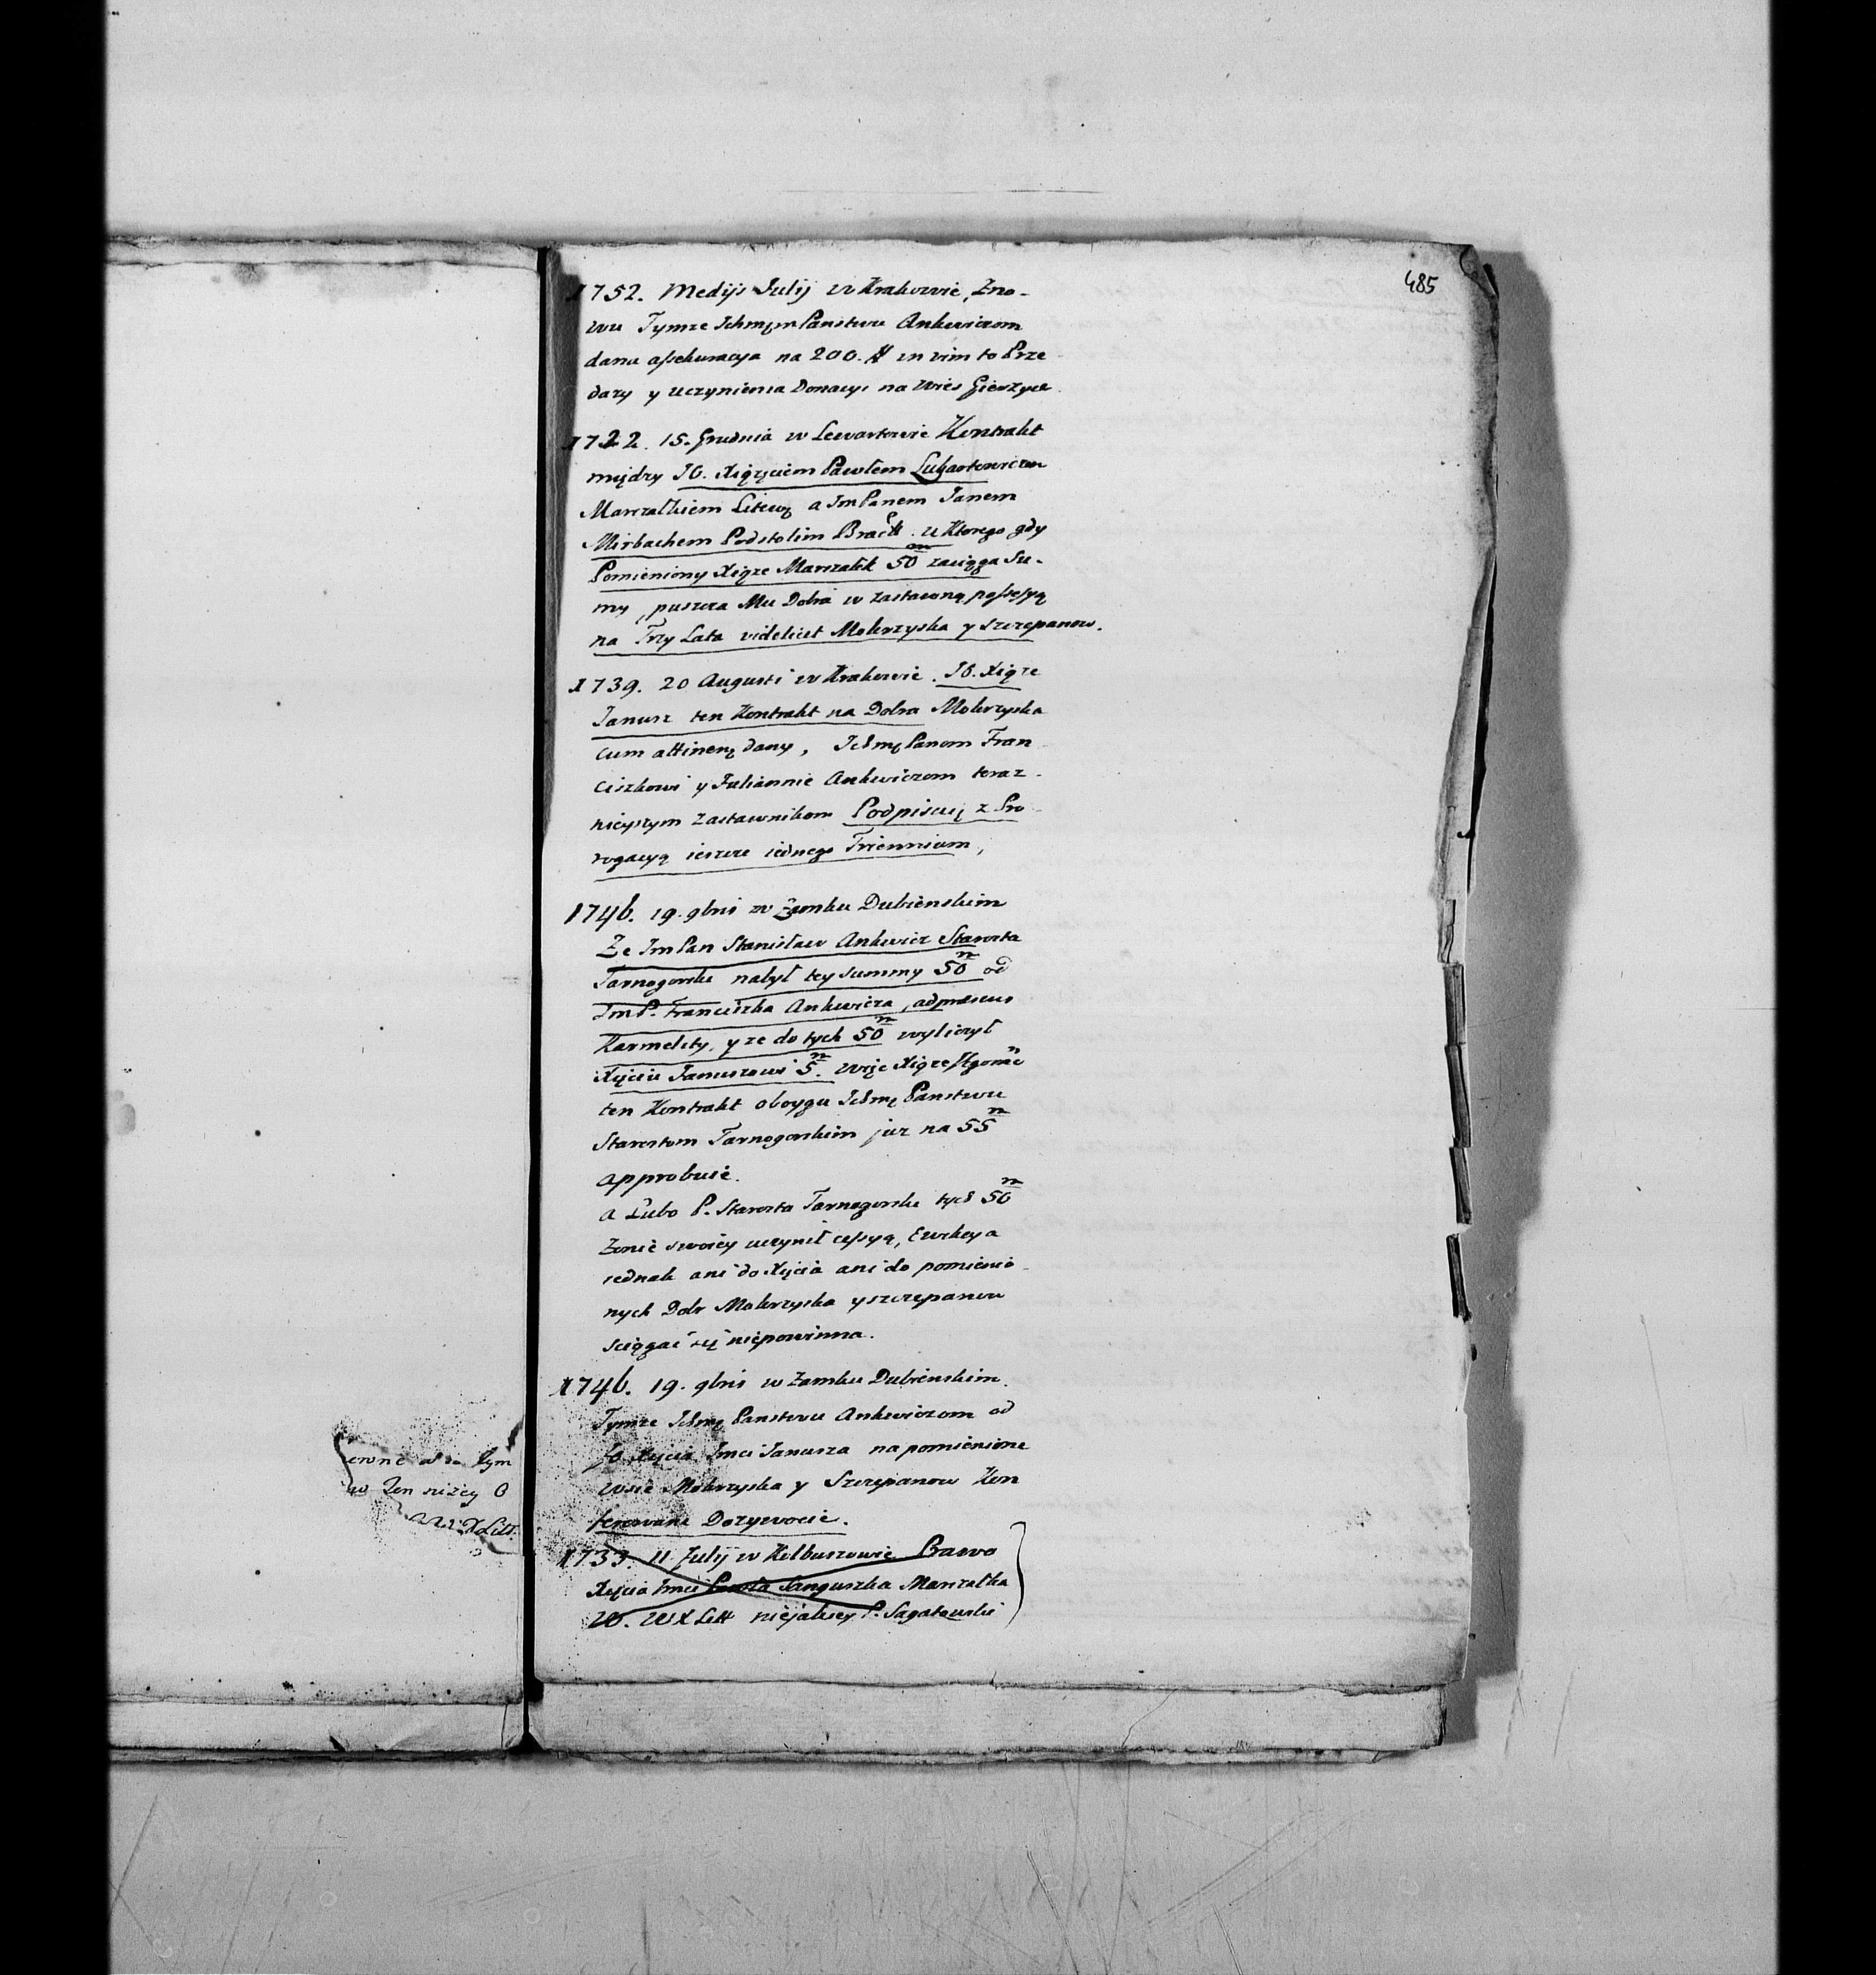 485
1752. Medijs Julij w Krakowie, Zno-
wu Tymze Ichmęm Panstwu Ankwiczom
dana assekuracya na 200. # in vim to Prze
dazy y uczynienia Donacyi na wies Gierzyce
1722. 15. Grudnia w Lewartowie Kontrakt
między JO. Xiążęciem Pawłem Lubartowiczem
Marszałkiem Litewą a Im Panem Janem
Mirbachem Podstolim Brack. u Ktorego gdy
Pomieniony Xiąze Marszałek 50 m zaciąga Su-
my, puszcza Mu Dobra w zastawną possessyą
na Trzy Lata videlicet Mokrzyska y Szczepanow.
1739. 20 Augusti w Krakowie. JO. Xiąze
Janusz ten Kontrakt na Dobra Mokrzyska
cum attinenę dany, Ichmę Panom Fran
ciszkowi y Juliannie Ankwiczom teraz-
nieyszym Zastawnikom Podpisuię z Pro
rogacyą ieszcze iednego Triennium,
1746. 19. 9bris w Zamku Dubienskim
Ze Im Pan Stanisław Ankwicz Starosta
Tarnogorski nabył tey summy 50 m od
Im P. Franciszka Ankwicza, ad praesens
Karmelity, y ze do tych 50 m wyliczył
Xięciu Januszowi 5 m. więc Xiąze
ten Kontrakt oboygu Ichmę Panstwu
Starostom Tarnogorskim juz na 55 m
approbuie.
a Lubo P. Starosta Tarnogorski tych 50 m
Zonie swoiey uczynił cessyą, Ewikcya
iednak ani do Xięcia ani do pomienio-
nych Dobr Mokrzyska y Szczepanow
sciągać się niepowinna.
1746. 19. 9bris w Zamku Dubienskim.
Tymze Ichmę Panstwu Ankwiczom od
JO Xięcia Imci Janusza na pomienione
wsie Mokrzyska y Szczepanow Kon
ferowane Dozywocie.
1733. 11 Julij w Kolbuszowie Prawo
Xięcia Imci Pawła Sanguszka Marszałka
W. W X Litt niejakiey P. Sagatowski
w Zen nizey
X Litt.